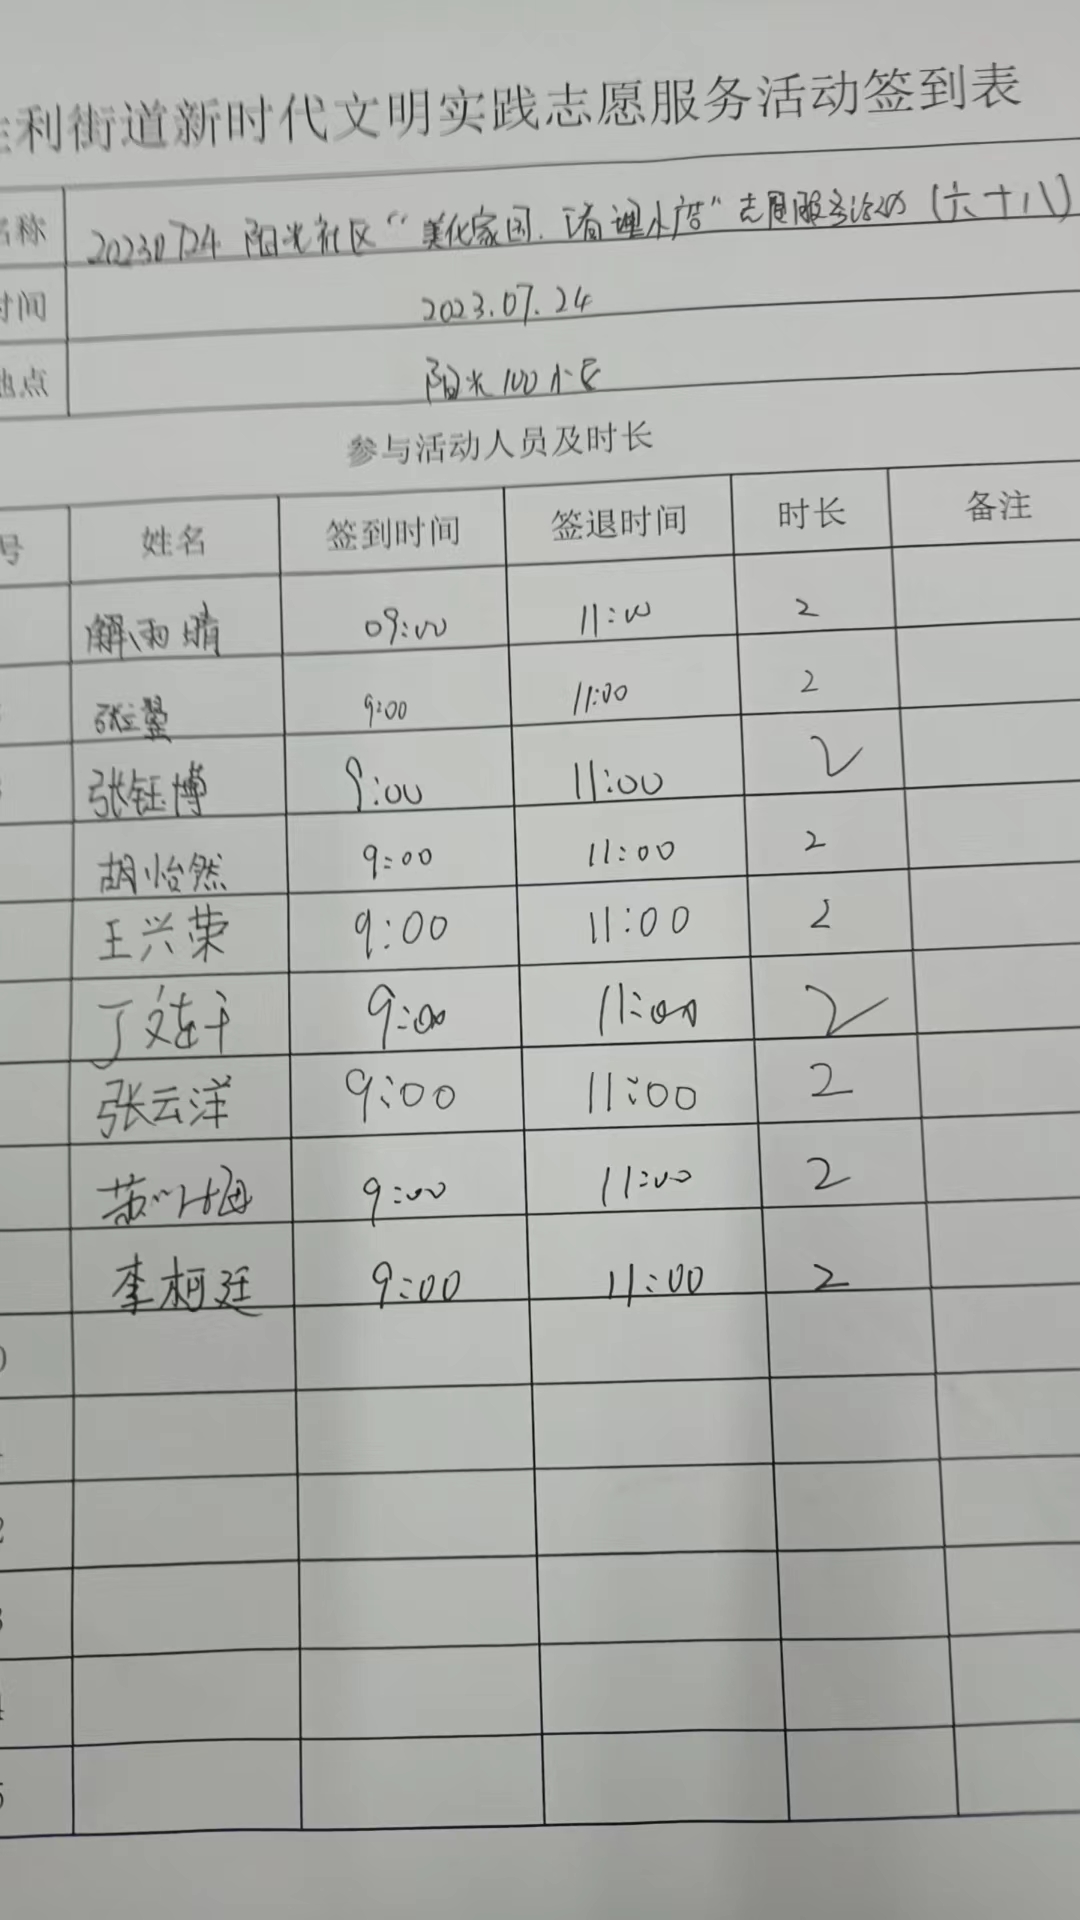 胜利街道新时代文明实践志愿服务活动签到表
名称 20230724 阳光社区“美化家园、清理小广告”志愿服务活动(六十八)
时间 2023.07.24
地点 阳光100小区
参与活动人员及时长
号 姓名 签到时间 签退时间 时长 备注
解雨晴 09:00 11:00 2
张翼 9:00 11:00 2
张钰博 9:00 11:00 2
胡怡然 9:00 11:00 2
王兴荣 9:00 11:00 2
丁文 9:00 11:00 2
张云洋 9:00 11:00 2
9:00 11:00 2
李柯廷 9:00 11:00 2
0
2
3
4
5